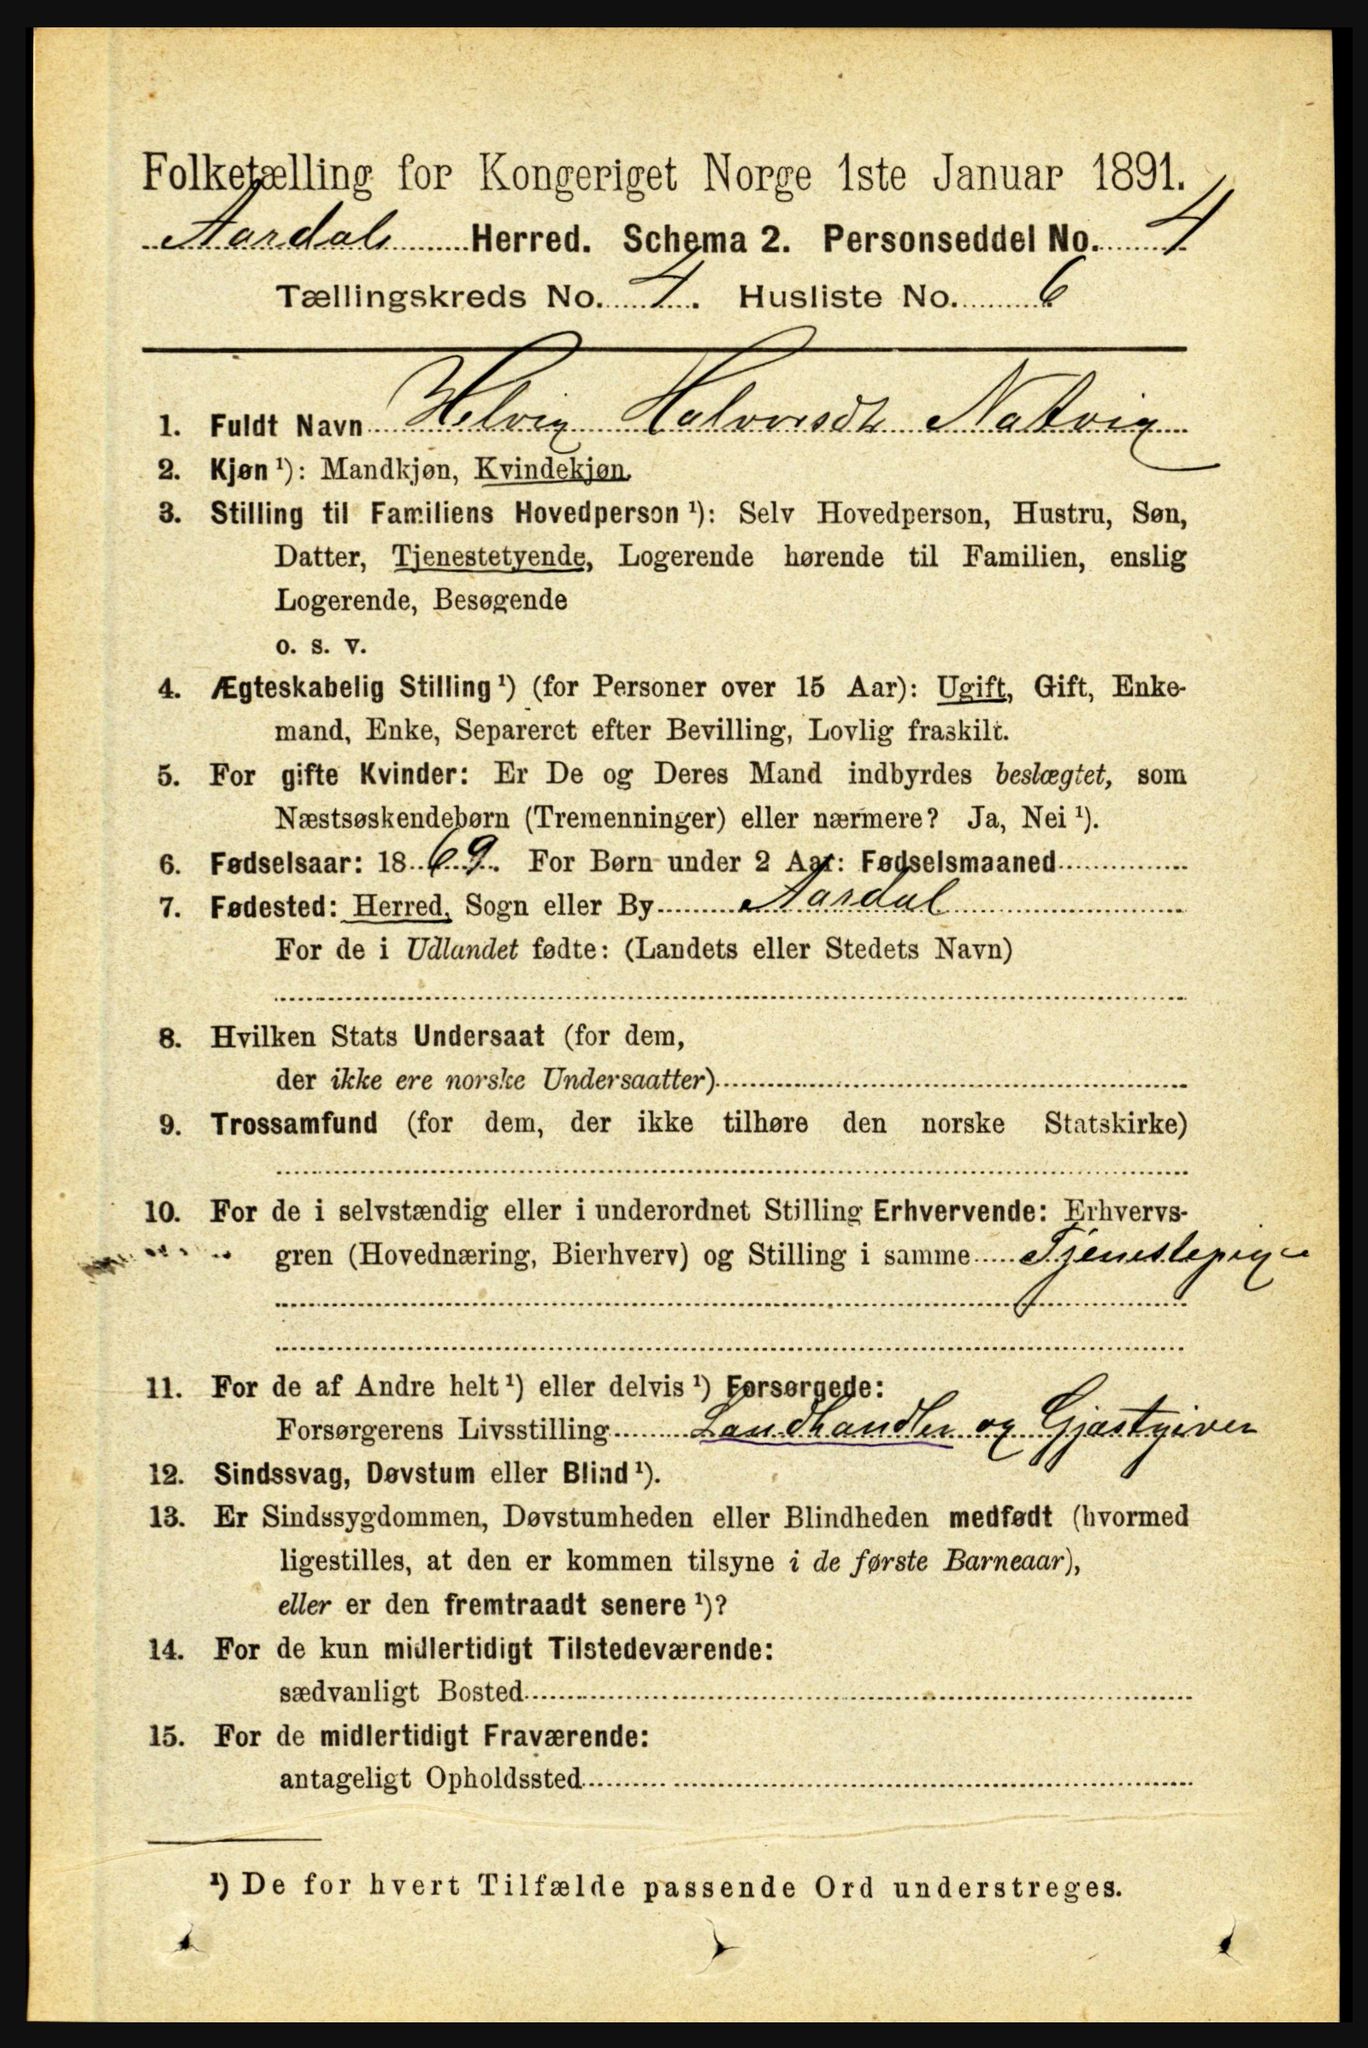 Folketælling for Kongeriget Norge 1ste Januar 1891.
Aardals Herred. Schema 2. Personseddel No. 4
Tællingskreds No. 4. Husliste No. 6
1. Fuldt Navn Helvig Halvorsdt Natvig
2. Kjøn ¹): Mandkjøn, Kvindekjøn.
3. Stilling til Familiens Hovedperson ¹): Selv Hovedperson, Hustru, Søn,
Datter, Tjenestetyende, Logerende hørende til Familien, enslig
Logerende, Besøgende
o. s. v.
4. Ægteskabelig Stilling ¹) (for Personer over 15 Aar): Ugift, Gift, Enke-
mand, Enke, Separeret efter Bevilling, Lovlig fraskilt.
5. For gifte Kvinder: Er De og Deres Mand indbyrdes beslægtet, som
Næstsøskendebørn (Tremenninger) eller nærmere? Ja, Nei ¹).
6. Fødselsaar: 1869. For Børn under 2 Aar: Fødselsmaaned
7. Fødested: Herred, Sogn eller By Aardal
For de i Udlandet fødte: (Landets eller Stedets Navn)
8. Hvilken Stats Undersaat (for dem,
der ikke ere norske Undersaatter)
9. Trossamfund (for dem, der ikke tilhøre den norske Statskirke)
10. For de i selvstændig eller i underordnet Stilling Erhvervende: Erhvervs-
gren (Hovednæring, Bierhverv) og Stilling i samme Tjenestepige
11. For de af Andre helt ¹) eller delvis ¹) Forsørgede:
Forsørgerens Livsstilling Landhandler og Gjæstgiver
12. Sindssvag, Døvstum eller Blind ¹).
13. Er Sindssygdommen, Døvstumheden eller Blindheden medfødt (hvormed
ligestilles, at den er kommen tilsyne i de første Barneaar),
eller er den fremtraadt senere ¹)?
14. For de kun midlertidigt Tilstedeværende:
sædvanligt Bosted
15. For de midlertidigt Fraværende:
antageligt Opholdssted
¹) De for hvert Tilfælde passende Ord understreges.